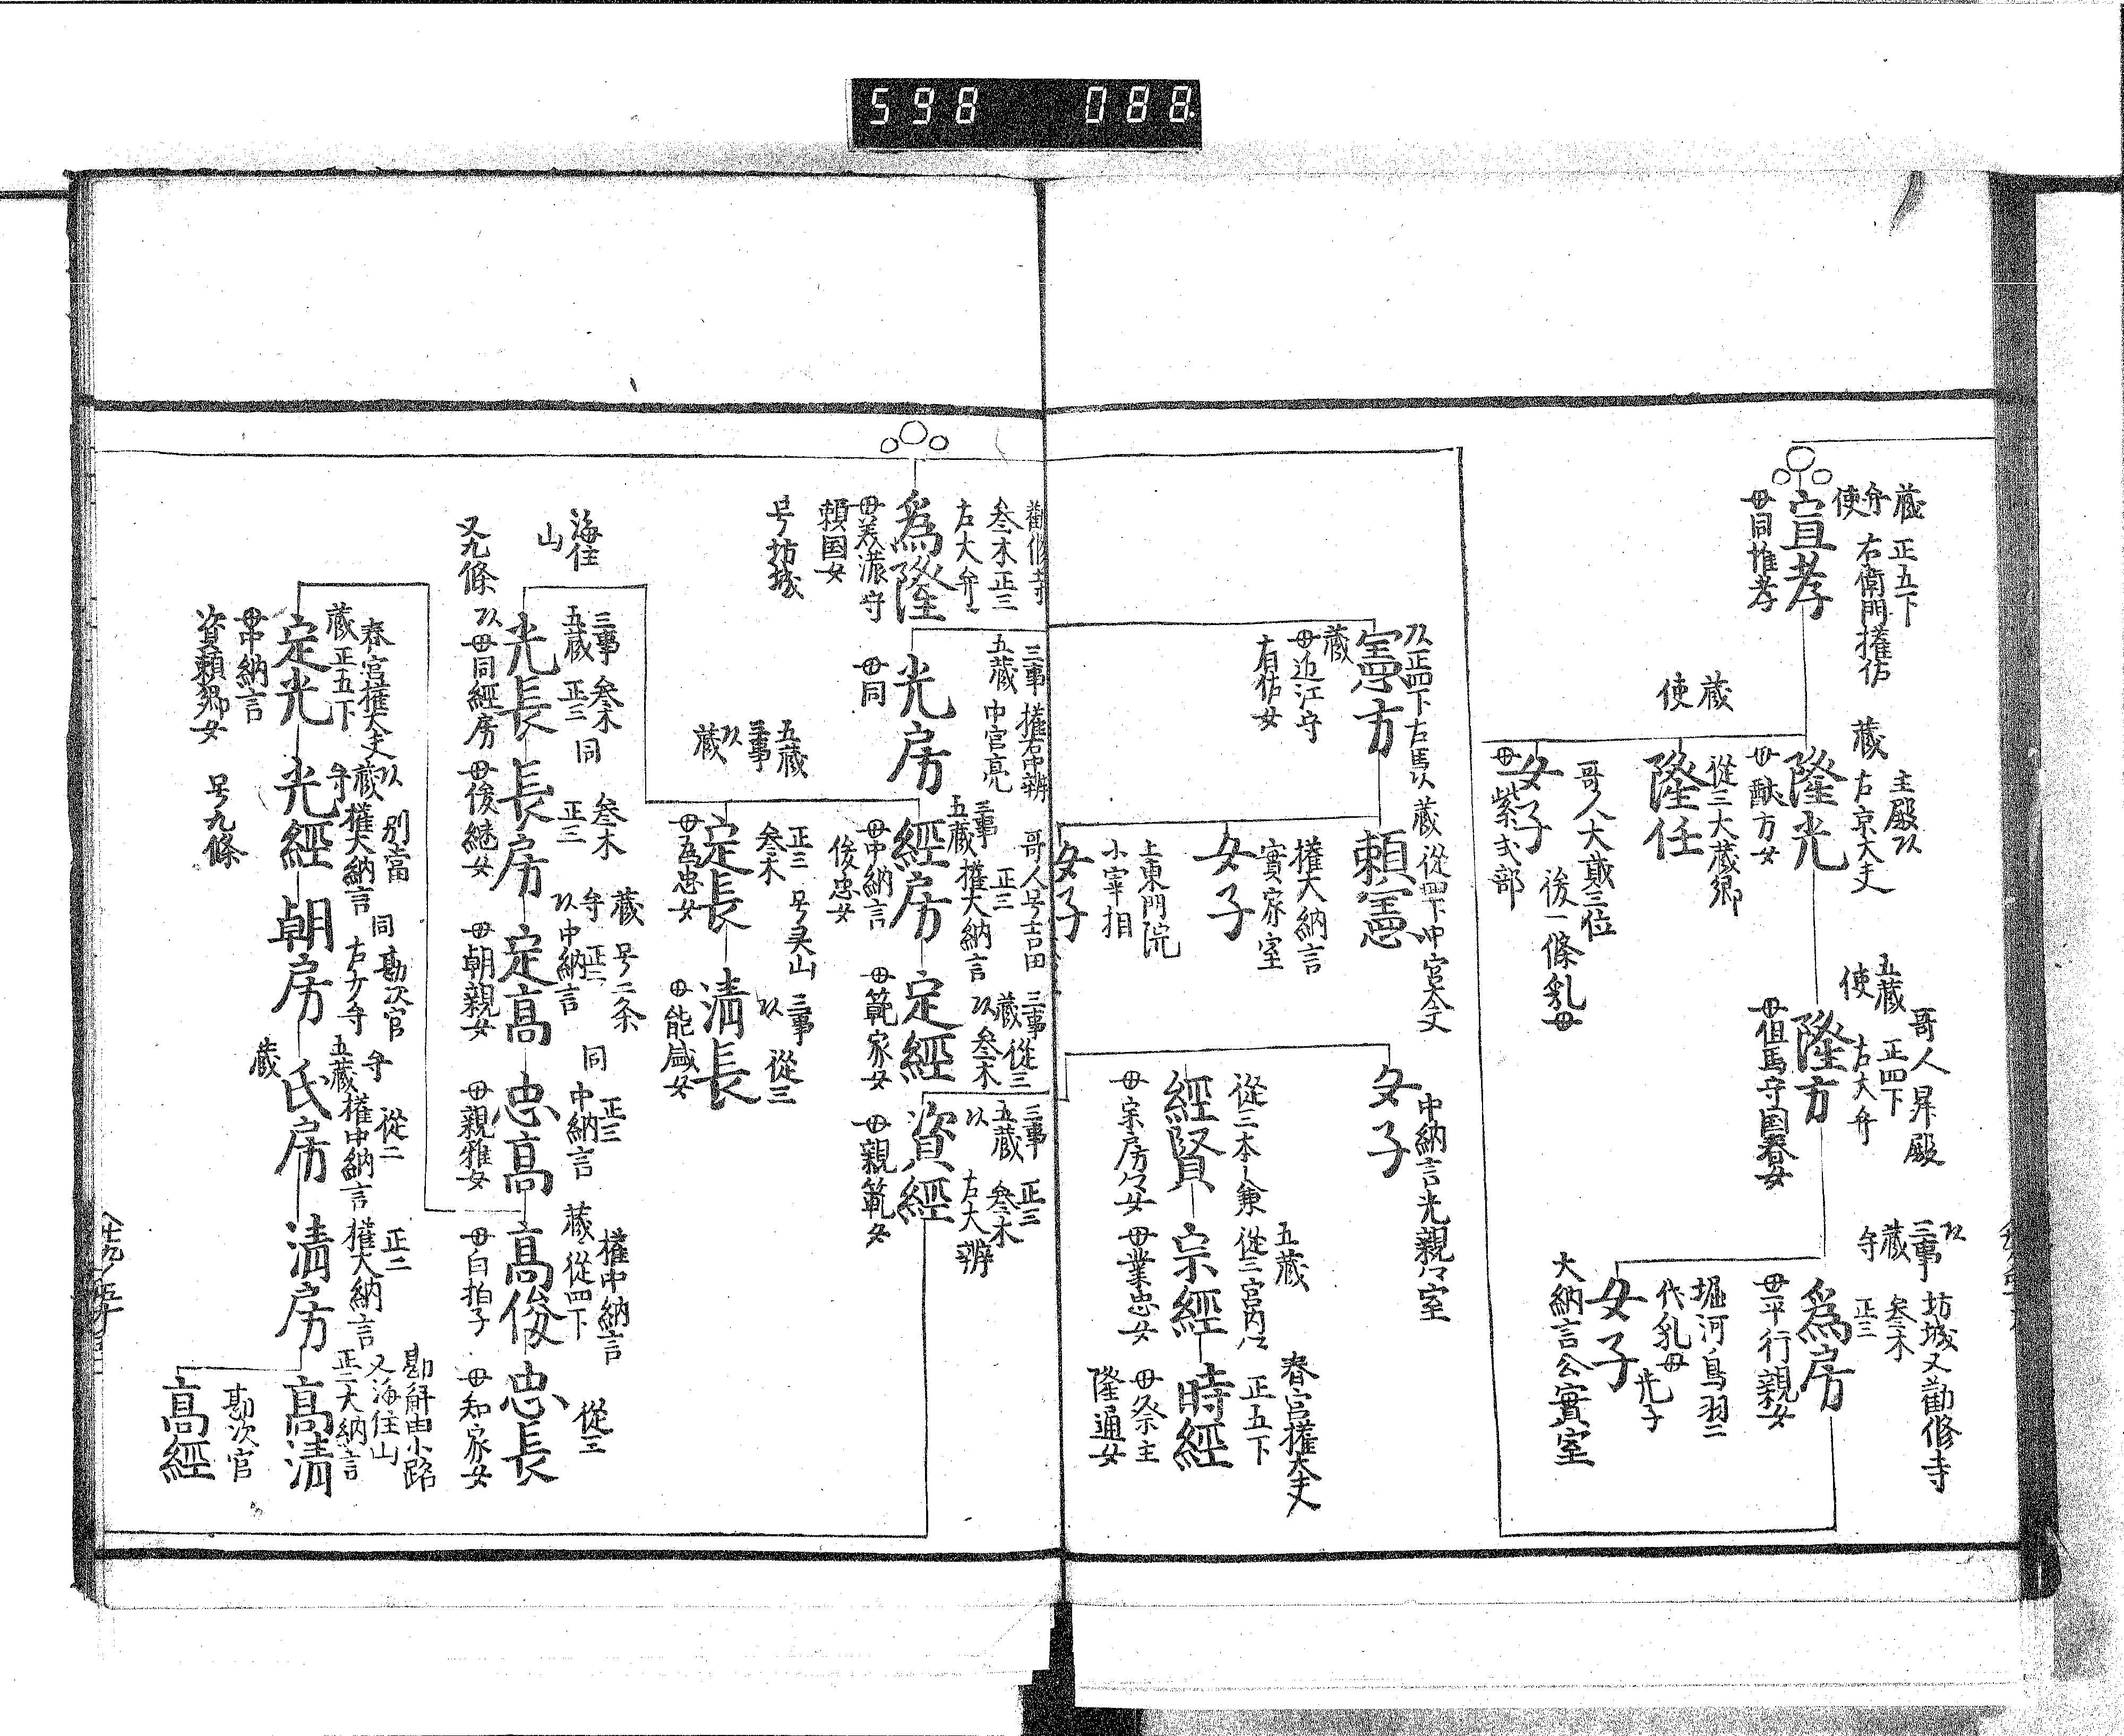 598 088
蔵 正五下
弁 右衛門権佐
使
宣孝
母同惟孝
蔵
主殿
右京大夫
隆光
母顕方女
蔵
使
従三大蔵卿
隆任
哥人大貳三位
後一條乳母
女子
母紫式部
哥人昇殿
五蔵 正四下
使 右大弁
隆方
母但馬守国春女
坊城又勧修寺
三事 叄木
蔵 正三
弁
為房
母平行親女
堀河鳥羽二
代乳母光子
女子
大納言公實室
正四下右馬
蔵
憲方
母近江守
有佑女
蔵従四下中宮大文
頼憲
権大納言
實家室
女子
上東門院
小宰相
女子
中納言光親々室
女子
従三
経賢
母宗房々女
五蔵
従三宮内々
宗経
母業忠女
春宮権大夫
正五下
時経
母祭主
隆通女
勧修寺
叄木正三
右大弁
為隆
母美濃守
頼国女
号坊城
三事 権右中辨
五蔵 中宮亮
光房
母同
哥人号吉田
三事 正三
五蔵 権大納言
経房
母中納言
俊忠女
三事 従三
蔵 叄木
定経
母範家女
三事 正三
五蔵 叄木
右大辨
資経
母親範女
五蔵
三事
蔵
正三 号灵山
叄木
定長
母為忠女
三事 従三
清長
母能盛女
海住
山
又九條
三事 叄木
五蔵 正三
光長
母同経房
同 叄木
正三
長房
母俊継女
蔵 号二条
弁 正二
中納言
定高
母朝親女
同 正三
中納言
忠高
母親雅女
権中納言
蔵 従四下
高俊
母白拍子
従三
忠長
母知家女
春宮権大夫
蔵 正五下
定光
母中納言
資頼卿女
別當
蔵 権大納言
弁
光経
号九條
同 勘次官
右少弁
朝房
蔵
弁 従二
五蔵 権中納言
氏房
正二
権大納言
清房
勘解由小路
又海住山
正二大納言
高清
勘次官
高経